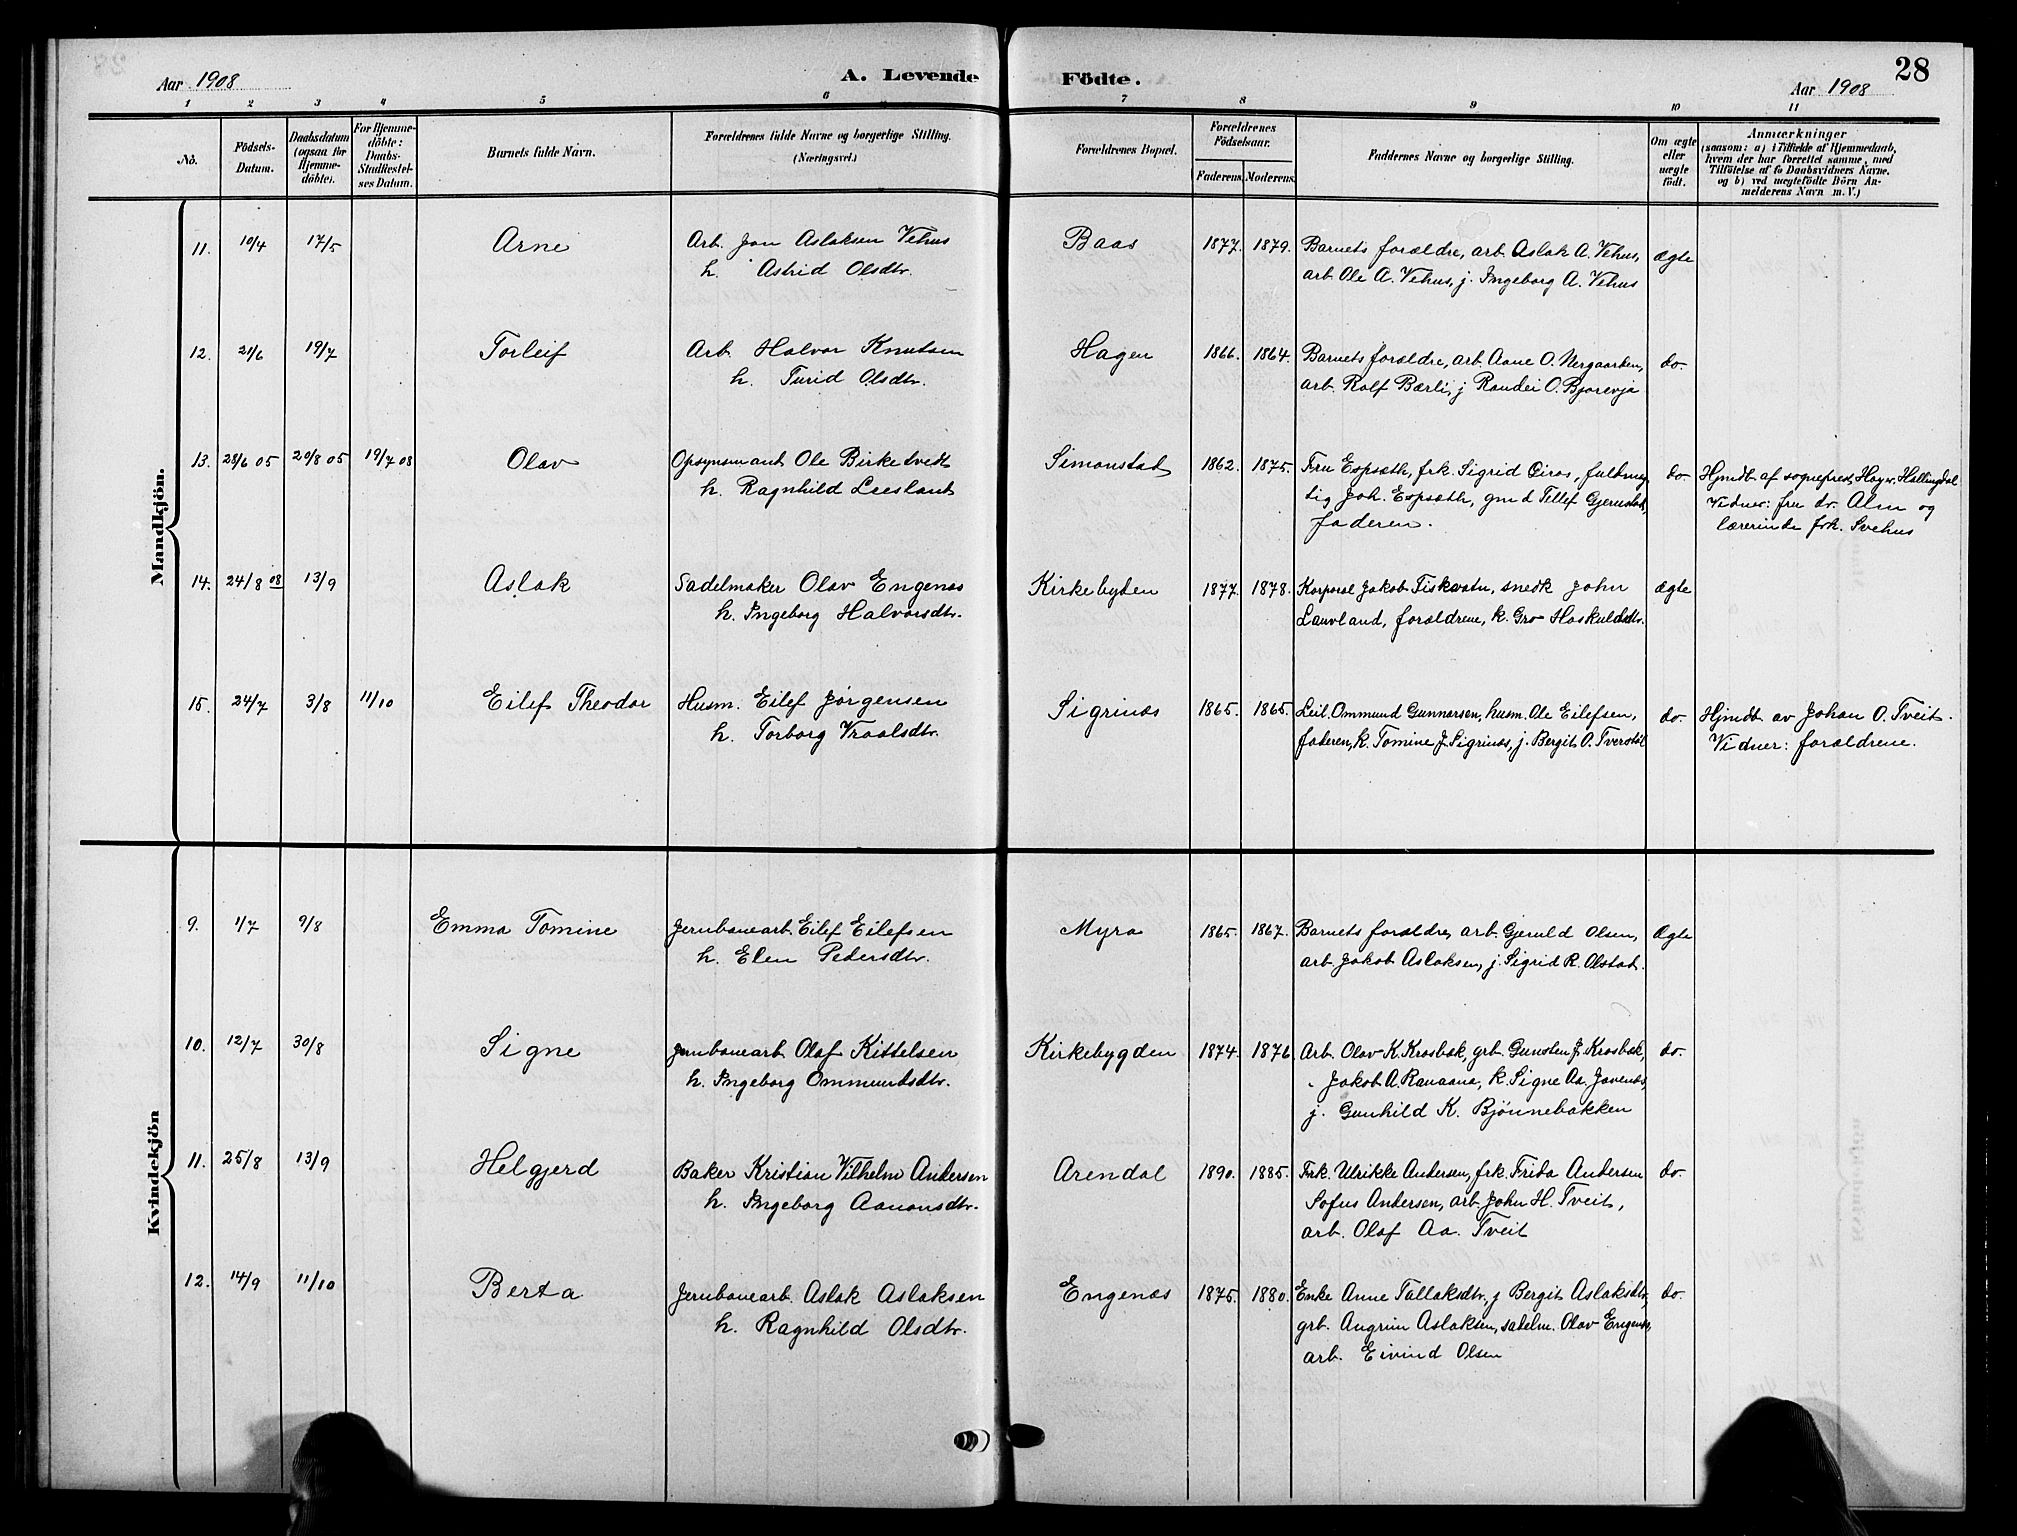 Aar 1908
A. Levende Födte.
Aar 1908
28
1 2 3 4 5 6 7 8 9 10 11
No.
Födsels-
Datum.
Daabsdatum
(ogsaa for
Hjemme-
döbte).
For Hjemme-
döbte:
Daabs-
Stadfæstel-
ses Datum.
Barnets fulde Navn.
Forældrenes fulde Navne og borgerlige Stilling.
(Næringsvei.)
Forældrenes Bopæl.
Forældrenes
Födselsaar.
Faderens. Moderens.
Faddernes Navne og borgerlige Stilling.
Om ægte
eller
uægte
født.
Anmærkninger
(saasom: a) i Tilfælde af Hjemmedaab,
hvem der har forrettet samme, med
Tilföielse af to Daabsvidners Navne,
og b) ved uægtefödte Börn An-
melderens Navn m. V.)
Mandkjön.
11. 10/4 17/5 Arne Arb. Jon Aslaksen Vehus Baas 1877. 1879. Barnets forældre, arb. Aslak A. Vehus, ægte
h. Astrid Olsdtr. arb. Ole A. Vehus, j. Ingeborg A. Vehus
12. 21/6 19/7 Torleif Arb. Halvor Knutsen Hagen 1866. 1864. Barnets forældre, arb. Aane O. Nergaarden, do.
h. Turid Olsdtr. arb. Rolf Bærli, j Randei O. Bjorevja
13. 28/6 05 20/8 05 19/7 08 Olav Opsynsmand Ole Birketvedt Simonstad 1862. 1875. Fru Espseth, frk. Sigrid fuldmeg do. Hjmdb. af sogneprest Høyer, Hallingdal
h. Ragnhild tig Joh. Espseth, gmd Tellef Gjerustad, Vidner: fru dr. Alm og
faderen. lærerinde frk. Svehus
14. 24/8 08 13/9 Aslak Sadelmaker Olav Engenæs Kirkebyden 1877. 1878. Korporal Jakob Fiskvatn, snedk John ægte
h. Ingeborg Halvorsdtr. Lauvland, forældrene, k. Gro Haskuldsdtr.
15. 24/7 3/8 11/10 Eilef Theodor Husm. Eilef Jørgensen Sigrinæs 1865. 1865. Leil. Ommund Gunnarsen, husm. Ole Eilefsen, do. Hjmdb. av Johan O. Tveit.
h. Torborg Vraalsdtr. faderen, k. Tomine J. Sigrinæs, j. Bergit O. Tverstøl Vidner: forældrene.
Kvindekjön
9. 1/7 9/8 Emma Tomine Jernbanearb. Eilef Eilefsen Myra 1865. 1867. Barnets forældre, arb. Gjeruld Olsen, Ægte
h. Elen Pedersdtr. arb. Jakob Aslaksen, j. Sigrid R. Olstad.
10. 12/7 30/8 Signe Jernbanearb. Olaf Kittelsen Kirkebygden 1874. 1876 Arb. Olav K. Krosbak, grb. Gunsten J. Krosbak, do.
h. Ingeborg Ommundsdtr. Jakob A. Ranaane, k. Signe Aa. Jovenæs,
j. Gunhild K. Bjønnebakken
11. 25/8 13/9 Helgjerd Baker Kristian Vilhelm Andersen Arendal 1890. 1885. Frk. Ulrikke Andersen, frk. Frida Andersen do.
h. Ingeborg Aanonsdtr. Sofus Andersen, arb. John H. Tveit,
arb. Olaf Aa. Tveit
12. 14/9 11/10 Berta Jernbanearb. Aslak Aslaksen Engenæs 1875. 1880. Enke Anne Tallaksdtr., j Bergit Aslaksdtr, do.
h. Ragnhild Olsdtr. grb. Angrim Aslaksen, sadelm. Olav Engenæs,
arb. Eivind Olsen